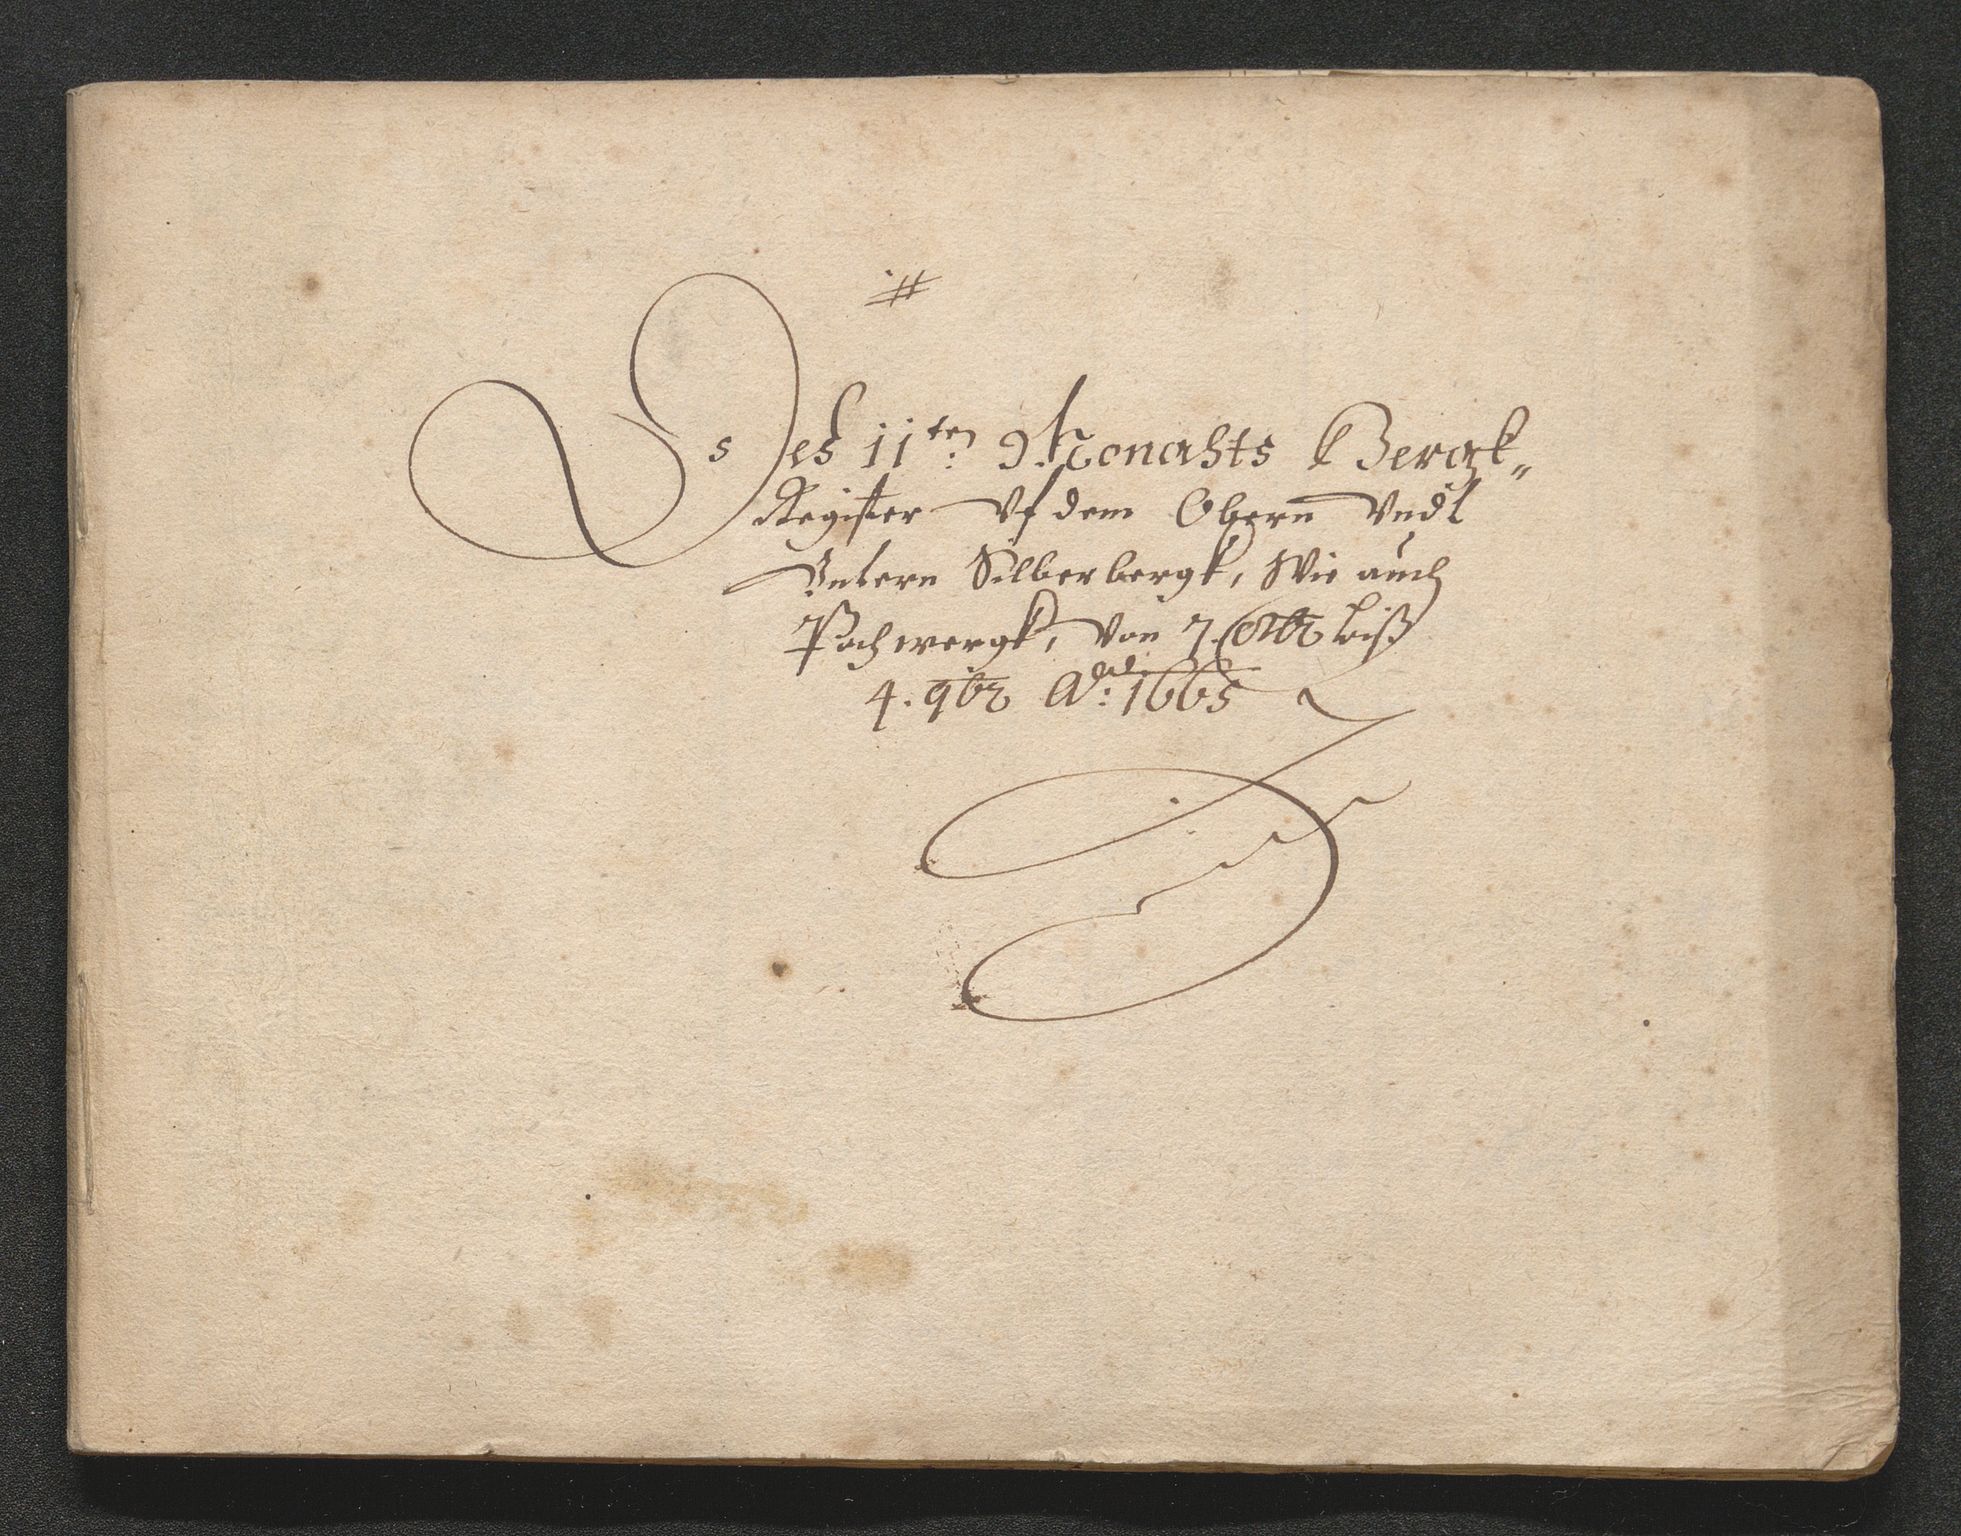 #
Des 11ten Monahts Bergk„
Register Vf dem Obern Vndt
Vntern Silberbergk, Wie auch
Pochwergk, Von 7. Octbr biß
4. 9br Ad: 1665